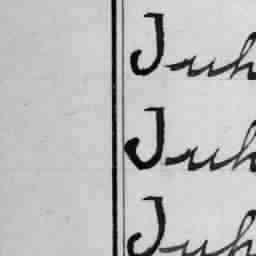 Juh
Juh
Juh